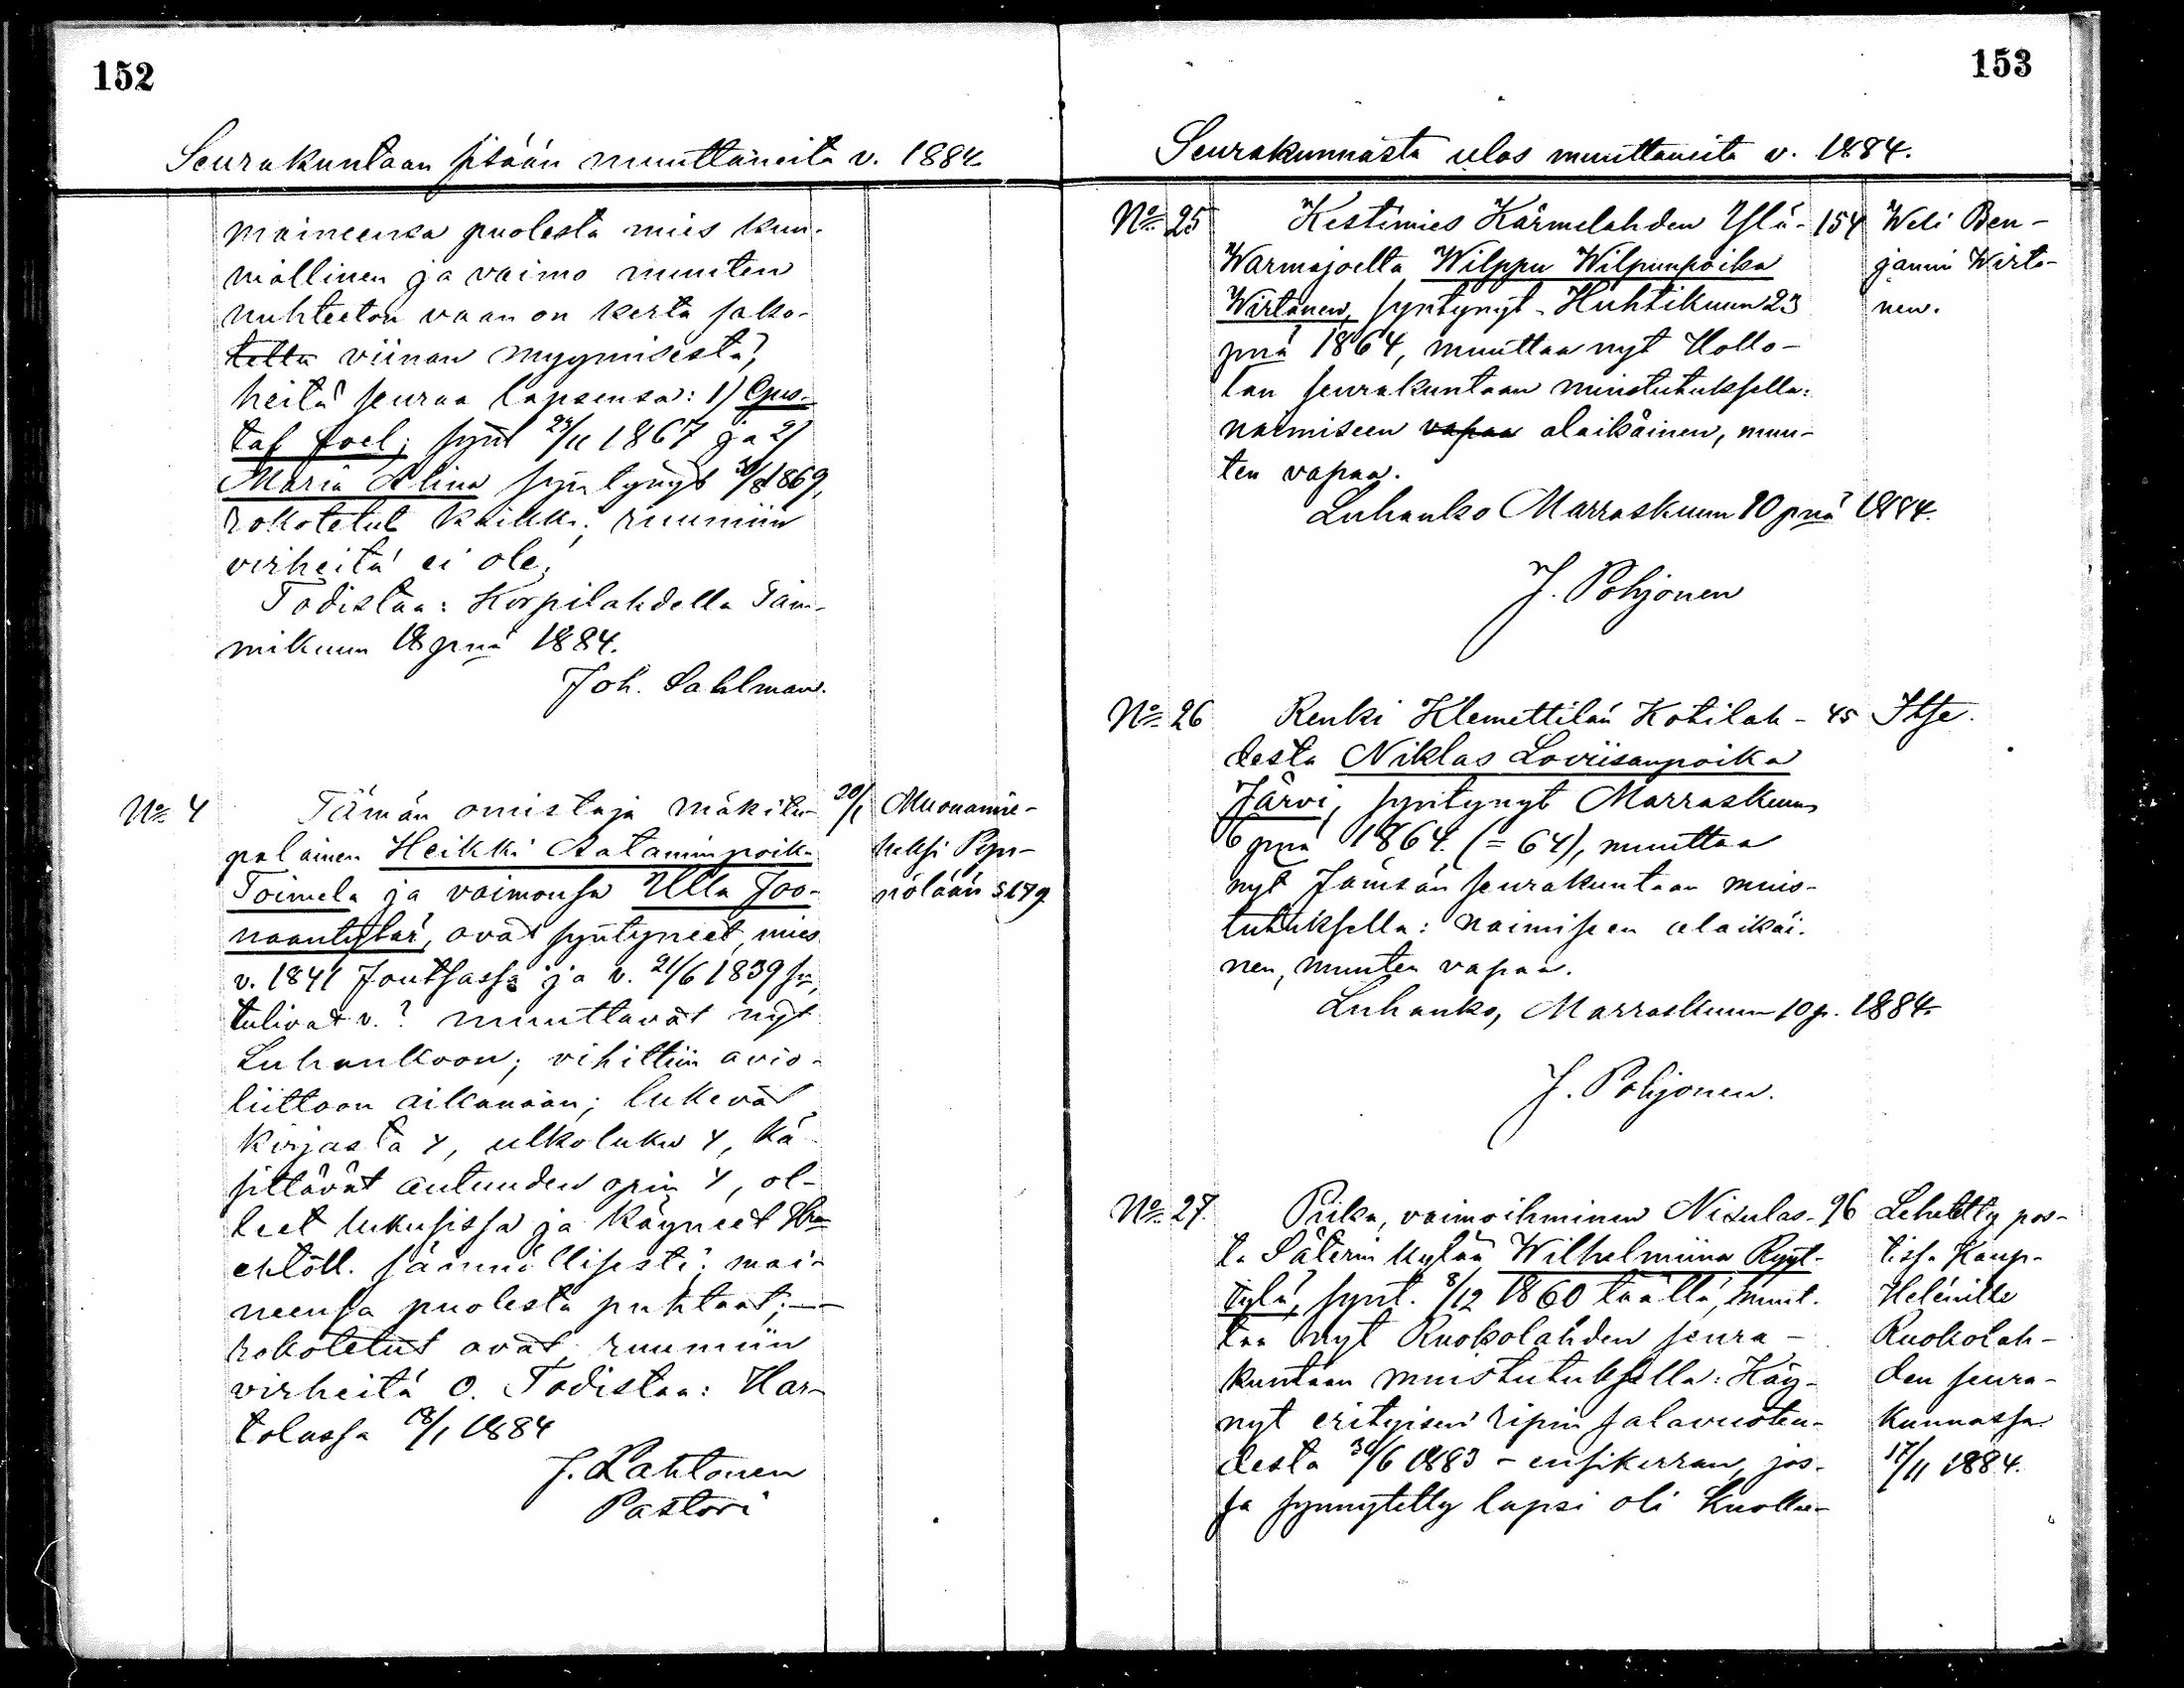 152
Seurakuntaan sisään muuttaneita v. 1884
maineensa puolesta mies kun-
niallinen ja vaimo muuten
nuhteeton vaan on kerta sako-
tettu viinan myymisestä;
heitä seuraa lapsensa: 1) Gus-
taf Joel, synt 24/11 1867 ja 2)
Maria Alina syntynyt 30/8 1869,
rokotetut kaikki; ruumiin
virheitä ei ole;
Todistaa: Korpilahdella Tam-
mikuun 18 pnä 1884.
Joh. Sahlman.
No 4 Tämän omistaja mäkitu- 20/1 Muonamie-
palainen Heikki Aataminpoika heksi Pyn-
Toimela ja vaimonsa Ulla Joo- nölään S 179
naantytär, ovat syntyneet, mies
v. 1841 Joutsassa ja v. 21/6 1839 sn,
tulivat v.? muuttavat nyt
Luhankoon; vihittiin avio-
liittoon aikanaan; lukevat
kirjasta 4, ulkoluku 4, kä-
sittävät autuuden opin 4, ol-
leet lukusissa ja käyneet Hran
ehtoll. säännöllisesti; mai-
neensa puolesta puhtaat; —
rokotetut ovat ruumiin
virheitä 0. Todistaa: Har-
tolassa 18/1 1884
J. Lahtonen
Pastori
153
Seurakunnasta ulos muuttaneita v. 1884.
No 25 Kestimies Kärmelahden Ylä- 154 Weli Ben-
Warmajoelta Wilppu Wilpunpoika jamin Wirta-
Wirtanen, syntynyt Huhtikuun 23 nen.
pnä 1864, muuttaa nyt Hollo-
lan seurakuntaan muistutuksella:
naimiseen vapaa alaikäinen, muu-
ten vapaa.
Luhanko Marraskuun 10 pnä 1884.
J. Pohjonen
No 26 Renki Klemettilän Kotilah- 45 Itse.
desta Niklas Loviisanpoika
Järvi, syntynyt Marraskuun
6 pnä 1864. (= 64), muuttaa
nyt Jämsän seurakuntaan muis-
tutuksella: naimiseen alaikäi-
nen, muuten vapaa.
Luhanko, Marraskuun 10 p. 1884.
J. Pohjonen.
No 27. Piika, vaimoihminen Nisulas- 96 Lehetetty pos-
ta Säterin kylän Wilhelmiina Ryyt- tissa Kaup-
tylä, synt. 8/12 1860 täällä, muut- Helénille
taa nyt Ruokolahden seura- Ruokolah-
kuntaan muistutuksella: Käy- den seura-
nyt erityisen ripin salavuoteu- kunnassa
desta 30/6 1883 – ensikerran, jos- 17/11 1884.
sa synnytetty lapsi oli kuollu-